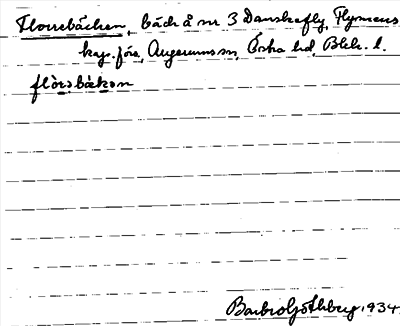 Florrebäcken, bäck å nr 3 Danskafly, Flymens
kap. förs, Augerums sn, Östra hd, Blek. l.
flòrəbäkən
Barbro Götberg 1934